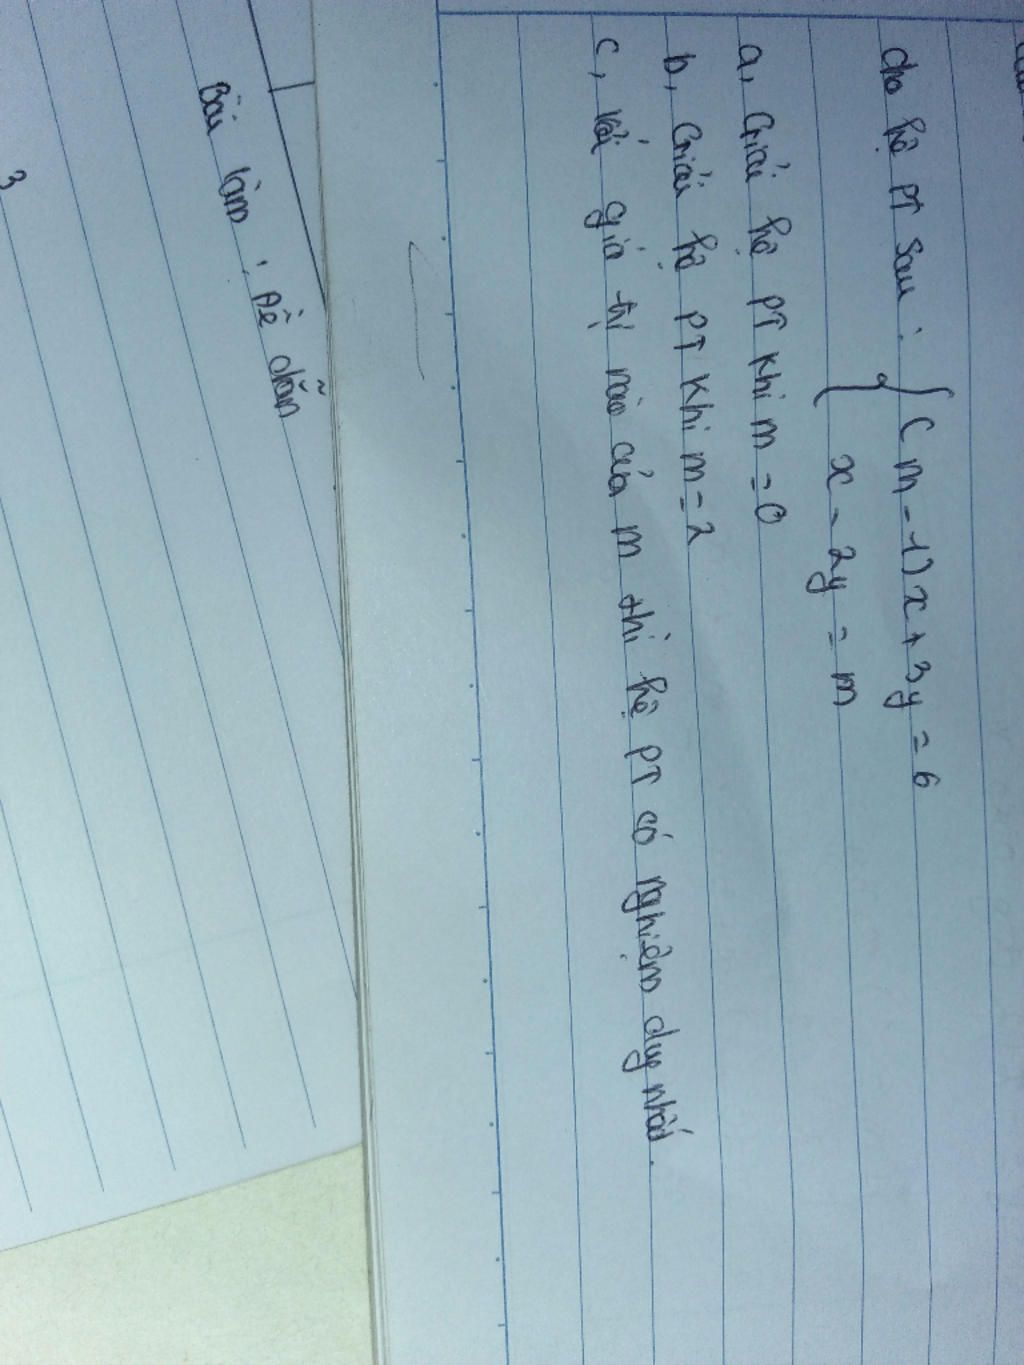 cho hệ PT sau : { (m - 1)x + 3y = 6
x - 2y = m
a, Giải hệ PT khi m = 0
b, Giải hệ PT khi m = 2
c, Với giá trị nào của m thì hệ PT có nghiệm duy nhất.
Bài làm :
3